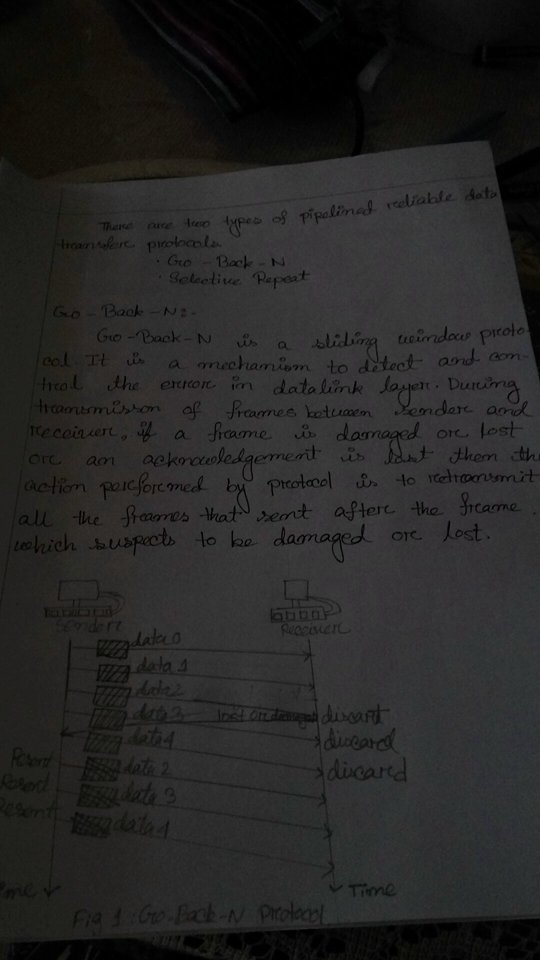 There are two types of pipelined reliable data
transfer protocols.
· Go - Back - N
· Selective Repeat
Go - Back - N:-
Go-Back-N is a sliding window proto-
col. It is a mechanism to detect and con-
trol the error in datalink layer. During
transmisson of frames between sender and
receiver, if a frame is damaged or lost
or an acknowledgement is lost then the
action performed by protocol is to retransmit
all the frames that sent after the frame.
which suspects to be damaged or lost.
Sender Receiver
data 0
data 1
data 2
data 3 lost or damaged discard
data 4 discared
Resent data 2 discared
Resent data 3
Resent data 4
Time Time
Fig 1: Go-Back-N Protocol